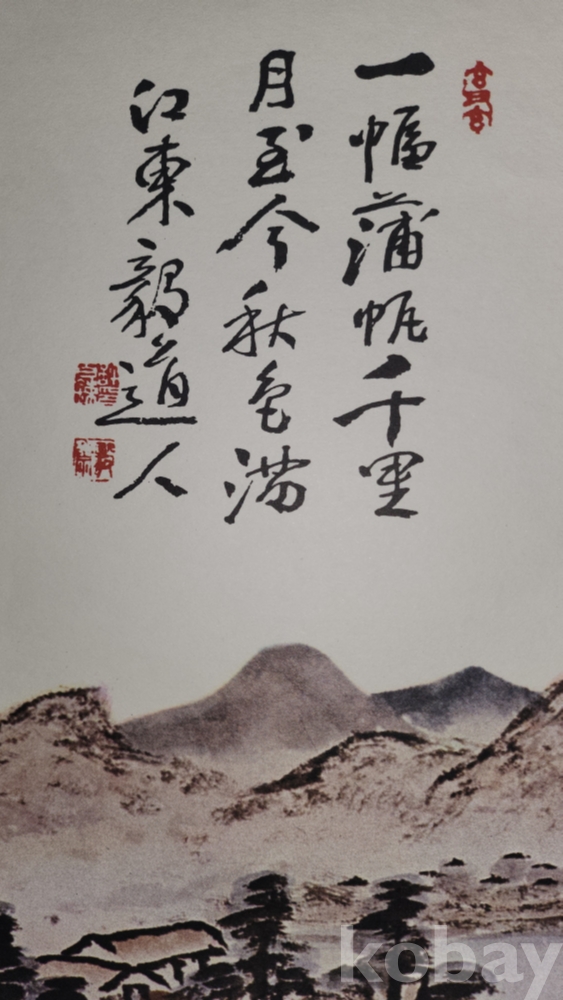 一幅蒲帆千里
月至今秋色滿
江東 毅道人
kobay